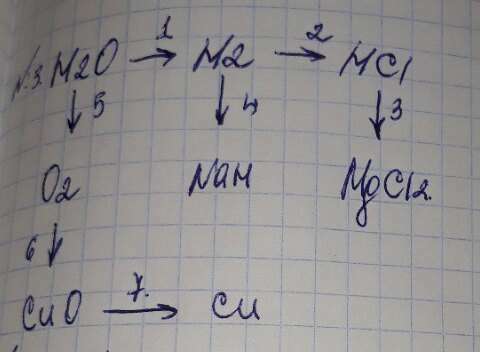 N3. H2O →1 H2 →2 HCl
↓5 ↓4 ↓3
O2 NaH MgCl2.
6↓
CuO →7. Cu